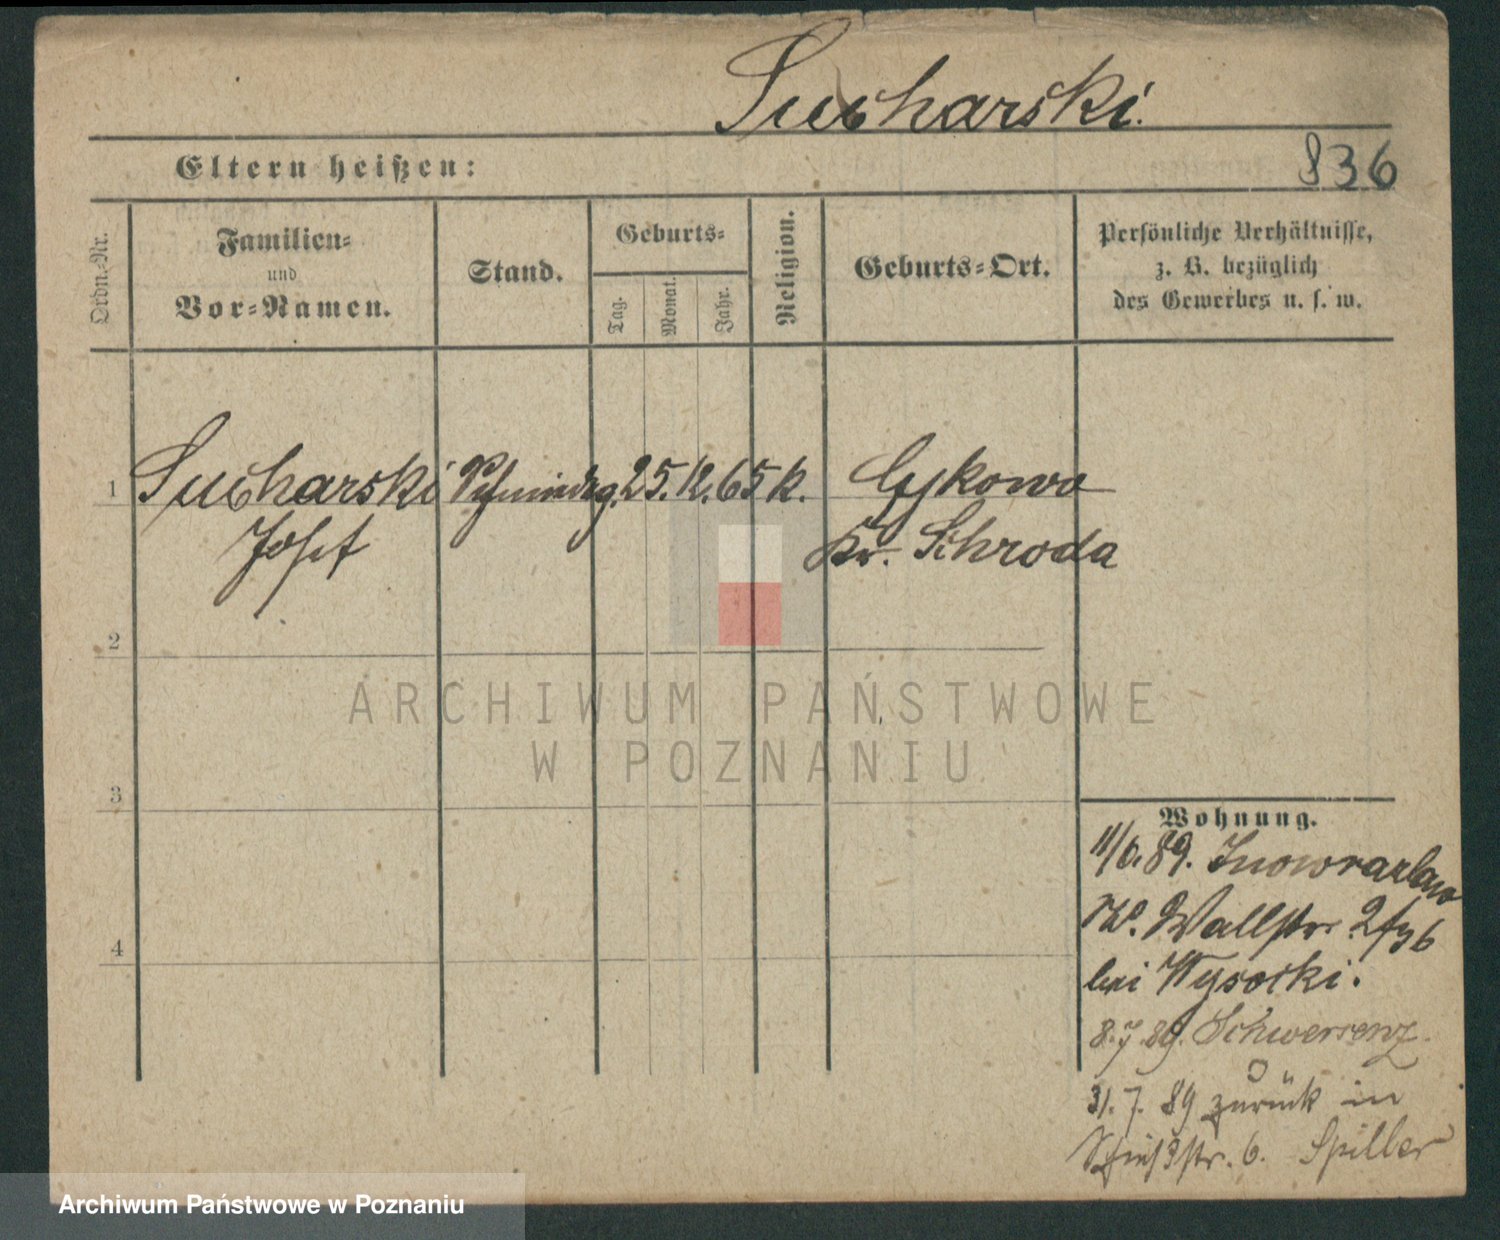 Sucharski.
Eltern heißen:
836
Ordn.-Nr.
Familien-
und
Vor-Namen.
Stand.
Geburts-
Tag.
Monat.
Jahr.
Religion.
Geburts-Ort.
Persönliche Verhältnisse,
z. B. bezüglich
des Gewerbes u. s. w.
1 Sucharski Schmiedeg. 25. 12. 65 k.
Josef
Kr. Schroda
2
3
4
Wohnung.
11/6. 89. Inowrazlaw
Wallstr.
bei Wysocki.
8. 7. 89. Schwersenz.
31. 7. 89 zurück in
Schießstr. 6. Spiller
ARCHIWUM PAŃSTWOWE
W POZNANIU
Archiwum Państwowe w Poznaniu